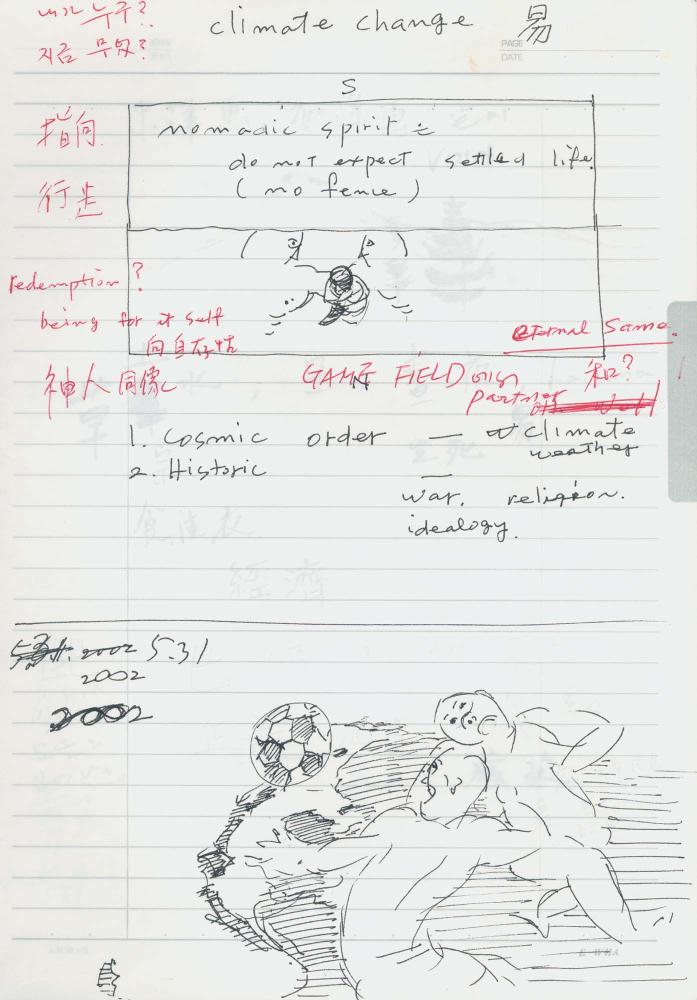 내가 누구?
지금 무엇?
climate change 易
PAGE
DATE
S
指向
nomadic spirit =
do not expect settled life.
(no fence)
行走
redemption?
being for it self
向自存性
eternal same.
神人同像
GAME FIELD
partner
和?
1. Cosmic order — climate
weather
2. Historic —
war, religion.
idealogy.
2002 5.31
2002
2002
E·WHA